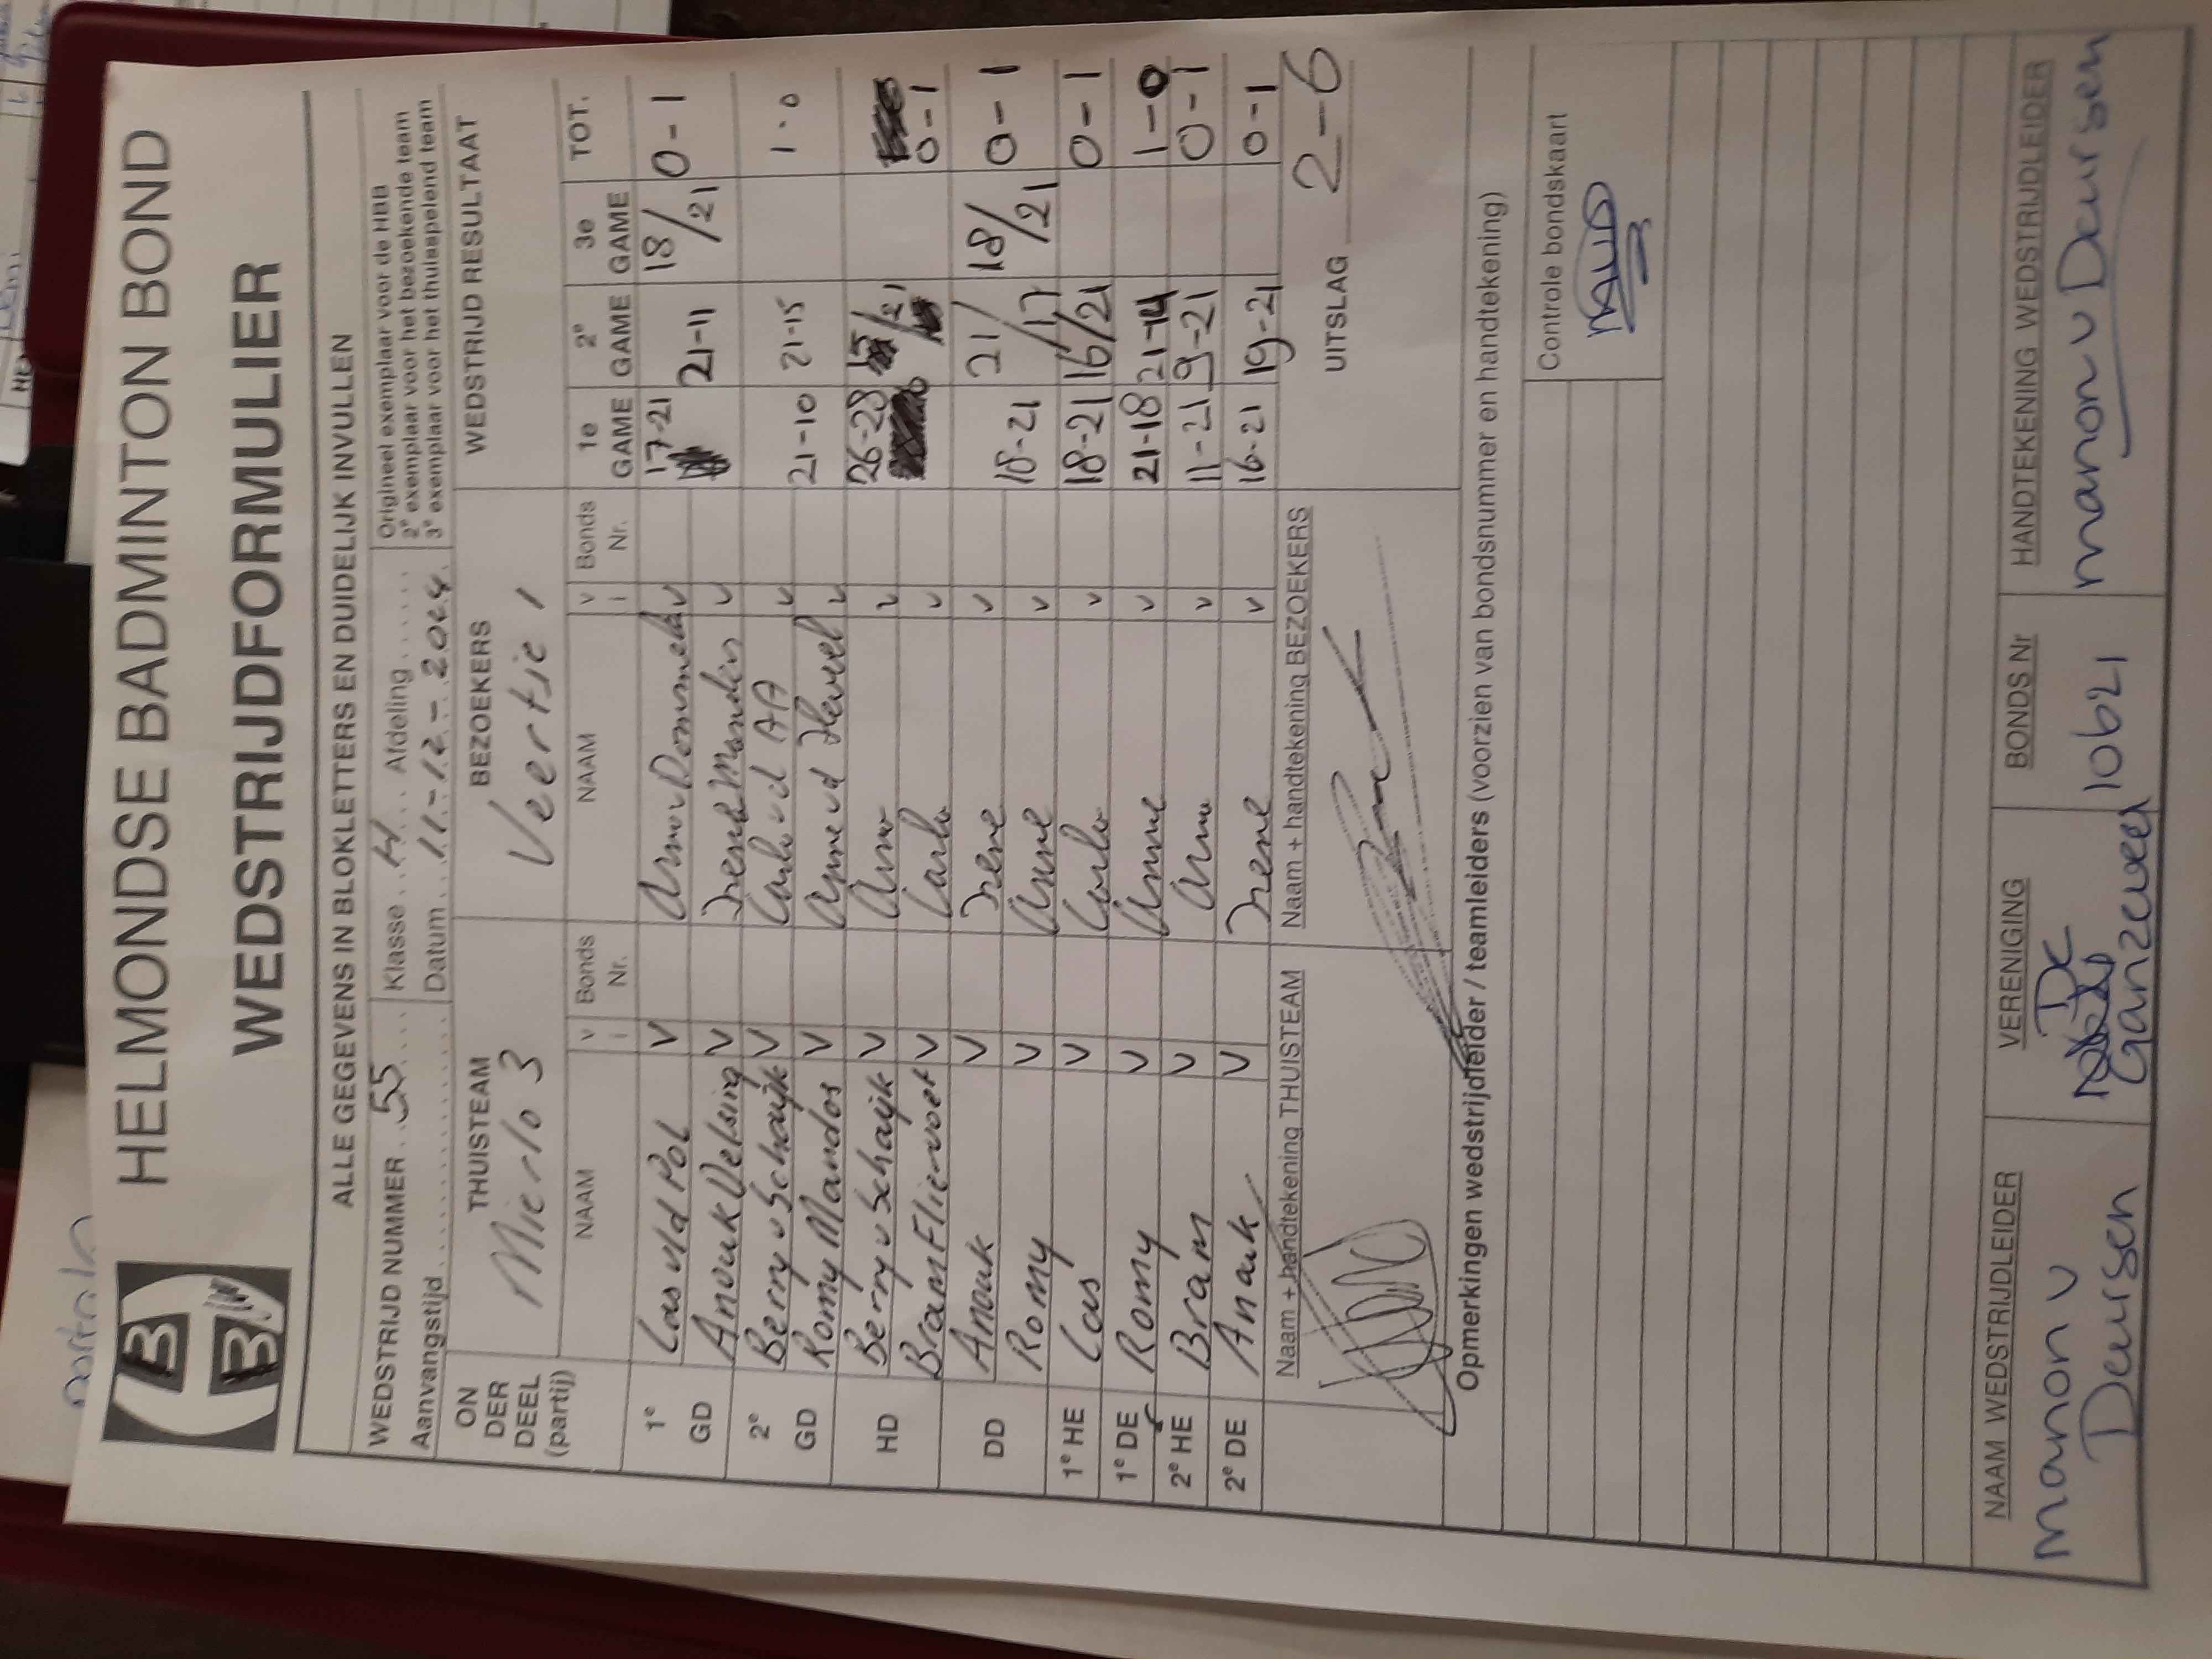 HELMONDSE BADMINTON BOND
WEDSTRIJDFORMULIER
ALLE GEGEVENS IN BLOKLETTERS EN DUIDELIJK INVULLEN
WEDSTRIJD NUMMER 55 Klasse H Afdeling
Aanvangstijd Datum 11-12-2024
Origineel exemplaar voor de HBB
2e exemplaar voor het bezoekende team
3e exemplaar voor het thuisspelend team
ON DER DEEL (partij) THUISTEAM BEZOEKERS WEDSTRIJD RESULTAAT
Mierlo 3 Veertje 1
NAAM v i Bonds Nr. NAAM v i Bonds Nr. 1e GAME 2e GAME 3e GAME TOT.
1e GD Cas vld Pol V Arno v v 17-21 21-11 18/21 0-1
Anouk Velsing V Irene v
2e GD Berry v Schaijk V Carlo v d AA v 21-10 21-15 1-0
Romy Mandos V Anne v d Heuvel v
HD Berry v Schaijk V Arno v 26-28 15/21 0-1
Bram Fliervoet V Carlo v
DD Anouk V Irene v 18-21 21/17 18/21 0-1
Romy V Anne v
1e HE Cas V Carlo v 18-21 16/21 0-1
1e DE Romy V Anne v 21-18 21-14 1-0
2e HE Bram V Arno v 11-21 9-21 0-1
2e DE Anouk V Irene v 16-21 19-21 0-1
Naam + handtekening THUISTEAM Naam + handtekening BEZOEKERS UITSLAG 2-6
Opmerkingen wedstrijdleider / teamleiders (voorzien van bondsnummer en handtekening)
Controle bondskaart
NAAM WEDSTRIJDLEIDER VERENIGING BONDS Nr HANDTEKENING WEDSTRIJDLEIDER
manon v Deursen De Ganzeveer 10621 manon v Deursen